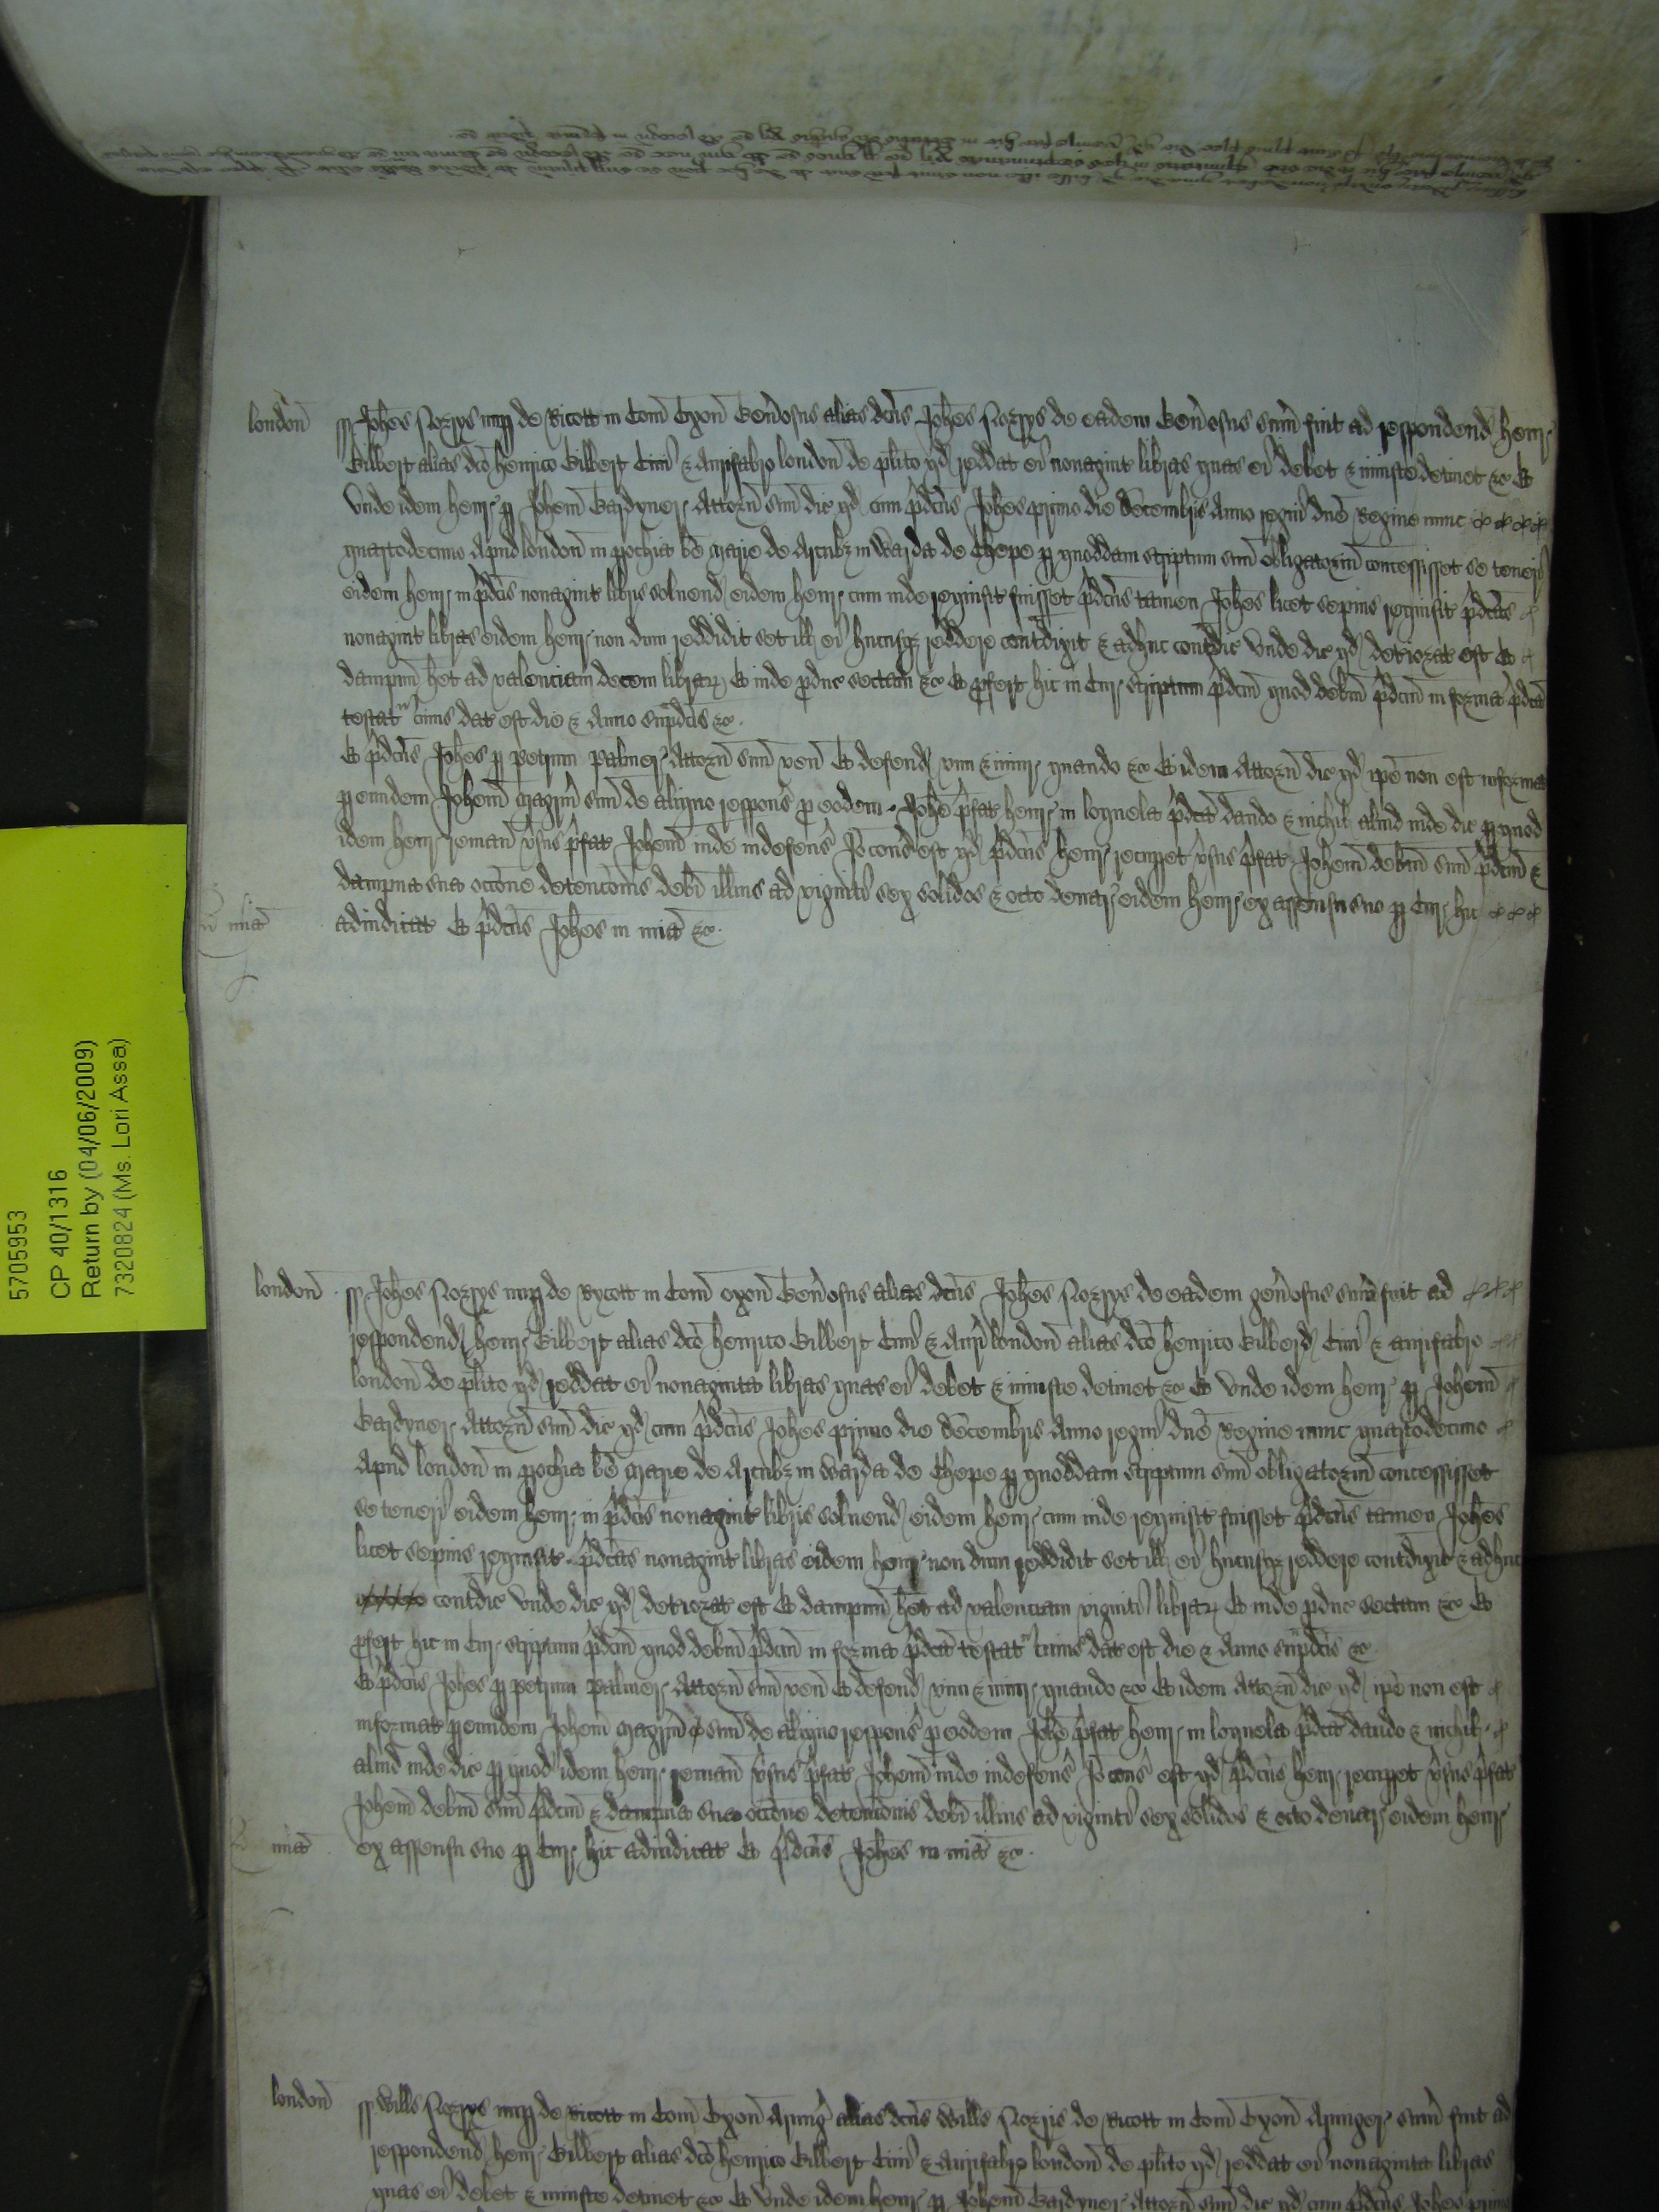 london̄ Joh̄es Norrys nup de Ricott in Com̄ Oxon̄ Gen̄osus alias dc̄us Joh̄es Norrys de eadem Gen̄osus sum̄ fuit ad respondend henr
Gilbert alias dc̄o henrico Gilbert Civi & Aurifabro london̄ de pl̄ito qd reddat ei nonagint libras quas ei debet & iniuste detinet &c Et
Unde idem henr p Joh̄em Gardyner Attorn̄ suū dic qd cum p̄dc̄us Joh̄es primo die Decembris Anno regni dn̄e Regine nunc
quartodecimo Apud london̄ in pochia bē Marie de Arcubz in Warda de Chepe p quoddam scriptum suū obligatoriū concessisset se teneri
eidem henr in p̄dc̄is nonagint libris solvend eidem henr cum inde requisit fuisset p̄dc̄us tamen Joh̄es licet sepius requisit p̄dc̄as
nonagint libras eidem henr non dum reddidit set ill ei hucusqz reddere contᵃdixit & adhuc contᵃdic Unde dic qd deteriorat est Et
dampnū het ad valenciam decem librar Et inde pduc sectam &c Et pfert hic in Cur scriptum p̄dc̄m quod debitū p̄dc̄m in forma p̄dcā
testat cuius dat est die & Anno sup̄dc̄is &c.
Et p̄dc̄us Joh̄es p petrum Palmer Attorn̄ suū ven̄ Et defend vim & iniur quando &c Et idem Attorn̄ dic qd ip̄e non est informat
p eundem Joh̄em Magr̄m suū de aliquo respons̄ p eodem Joh̄e p̄fat henr in loquela p̄dcā dando & nichil aliud inde dic p quod
idem henr reman̄ v̄sus p̄fat Joh̄em inde indefens̄ Iō cons̄ est qd p̄dc̄us henr recupet v̄sus p̄fat Joh̄em debitū suū p̄dc̄m &
dampna sua occ̄one detenc̄onis debī illius ad viginti sex solidos & octo denar eidem henr ex assensu suo p Cur hic
mīa adiudicat Et p̄dc̄us Joh̄es in mīa &c.
london̄ Joh̄es Norrys nup de Rycott in Com̄ Oxon̄ Gen̄osus alias dc̄us Joh̄es Norrys de eadem gen̄osus sum̄ fuit ad
respondend henr Gilbert alias dc̄o henrico Gilbert Civi & Auri london̄ alias dc̄o henrico Gilberd Civi & aurifabro
london̄ de pl̄ito qd reddat ei nonaginta libras quas ei debet & iniuste detinet &c Et Unde idem henr p Joh̄em
Gardyner Attorn̄ suū dic qd cum p̄dc̄us Joh̄es primo die Decembris Anno regni dn̄e Regine nunc quartodecimo
Apud london̄ in pochia bē Marie de Arcubz in Warda de Chepe p quoddam scriptum suū obligatoriū concessisset
se teneri eidem henr in p̄dc̄is nonagint libris solvend eidem henr cum inde requisit fuisset p̄dc̄us tamen Joh̄es
licet sepius requisit p̄dc̄as nonagint libras eidem henr non dum reddidit set ill ei hucusqz reddere contᵃdixit & adhuc
contᵃdic Unde dic qd deteriorat est Et dampnū het ad valenciam viginti librar Et inde pduc sectam &c Et
pfert hic in Cur scriptum p̄dc̄m quod debitū p̄dc̄m in forma p̄dcā testat cuius dat est die & Anno sup̄dc̄is &c
Et p̄dc̄us Joh̄es p petrum Palmer Attorn̄ suū ven̄ Et defend vim & iniur quando &c Et idem Attorn̄ dic qd ip̄e non est
informat p eundem Joh̄em Magr̄m suū de aliquo respons̄ p eodem Joh̄e p̄fat henr in loquela p̄dcā dando & nichil
aliud inde dic p quod idem henr reman̄ v̄sus p̄fat Joh̄em inde indefens̄ Iō cons̄ est qd p̄dc̄us henr recupet v̄sus p̄fat
Joh̄em debitū suū p̄dc̄m & dampna sua occ̄one detenc̄onis debī illius ad viginti sex solidos & octo denar eidem henr
mīa ex assensu suo p Cur hic adiudicat Et p̄dc̄us Joh̄es in mīa &c.
london̄ Will̄s Norrys nup de Ricott in Com̄ Oxon̄ Armiḡ alias dc̄us Will̄s Norris de Ricott in Com̄ Oxon̄ Armiger sum̄ fuit ad
respondend henr Gilbert alias dc̄o henrico Gilbert Civi & Aurifabro london̄ de pl̄ito qd reddat ei nonaginta libras
quas ei debet & iniuste detinet &c Et Unde idem henr p Joh̄em Gardyner Attorn̄ suū dic qd cum p̄dc̄us Joh̄es primo
5705953
CP 40/1316
Return by (04/06/2009)
7320824 (Ms. Lori Assa)